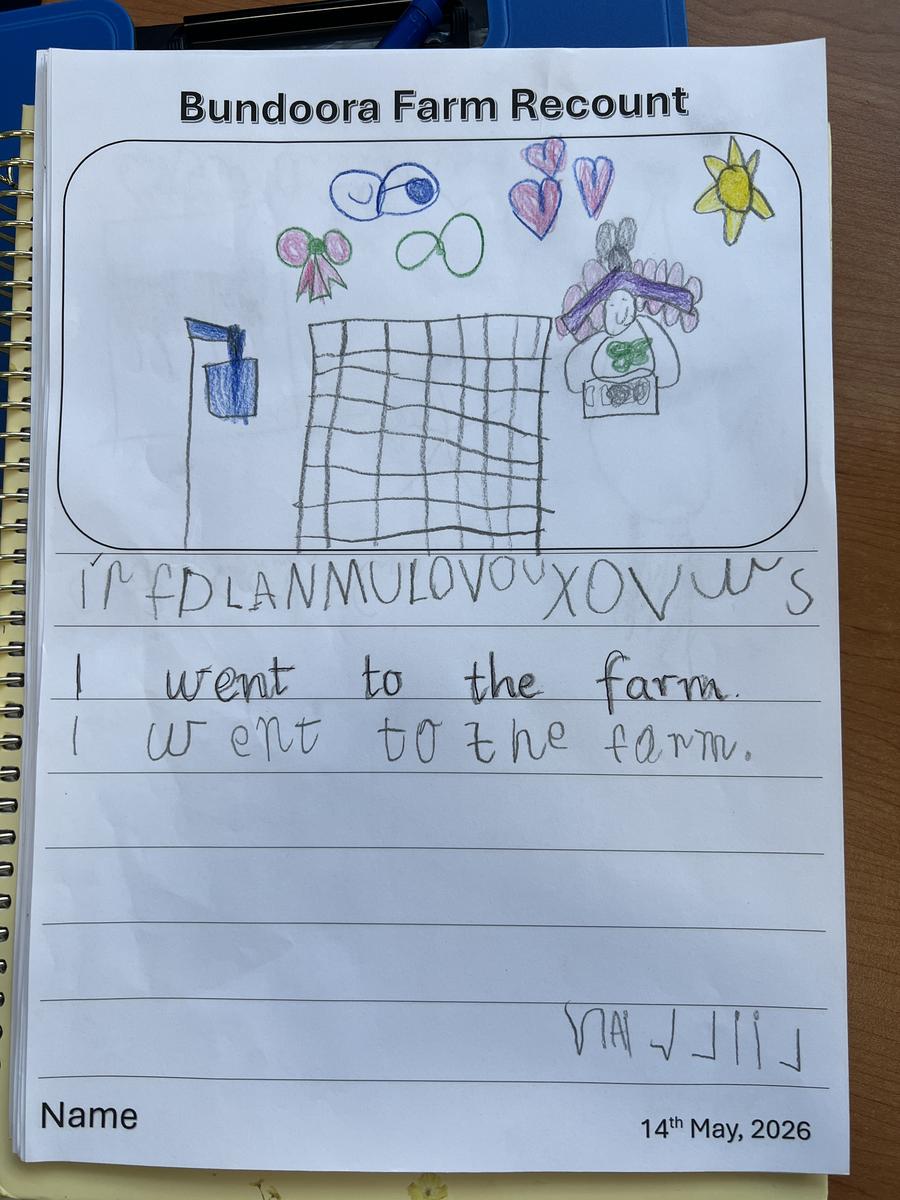 Bundoora Farm Recount
ir fDLANMULOVOUXOVuws
I went to the farm.
I went to the farm.
Name
14th May, 2026